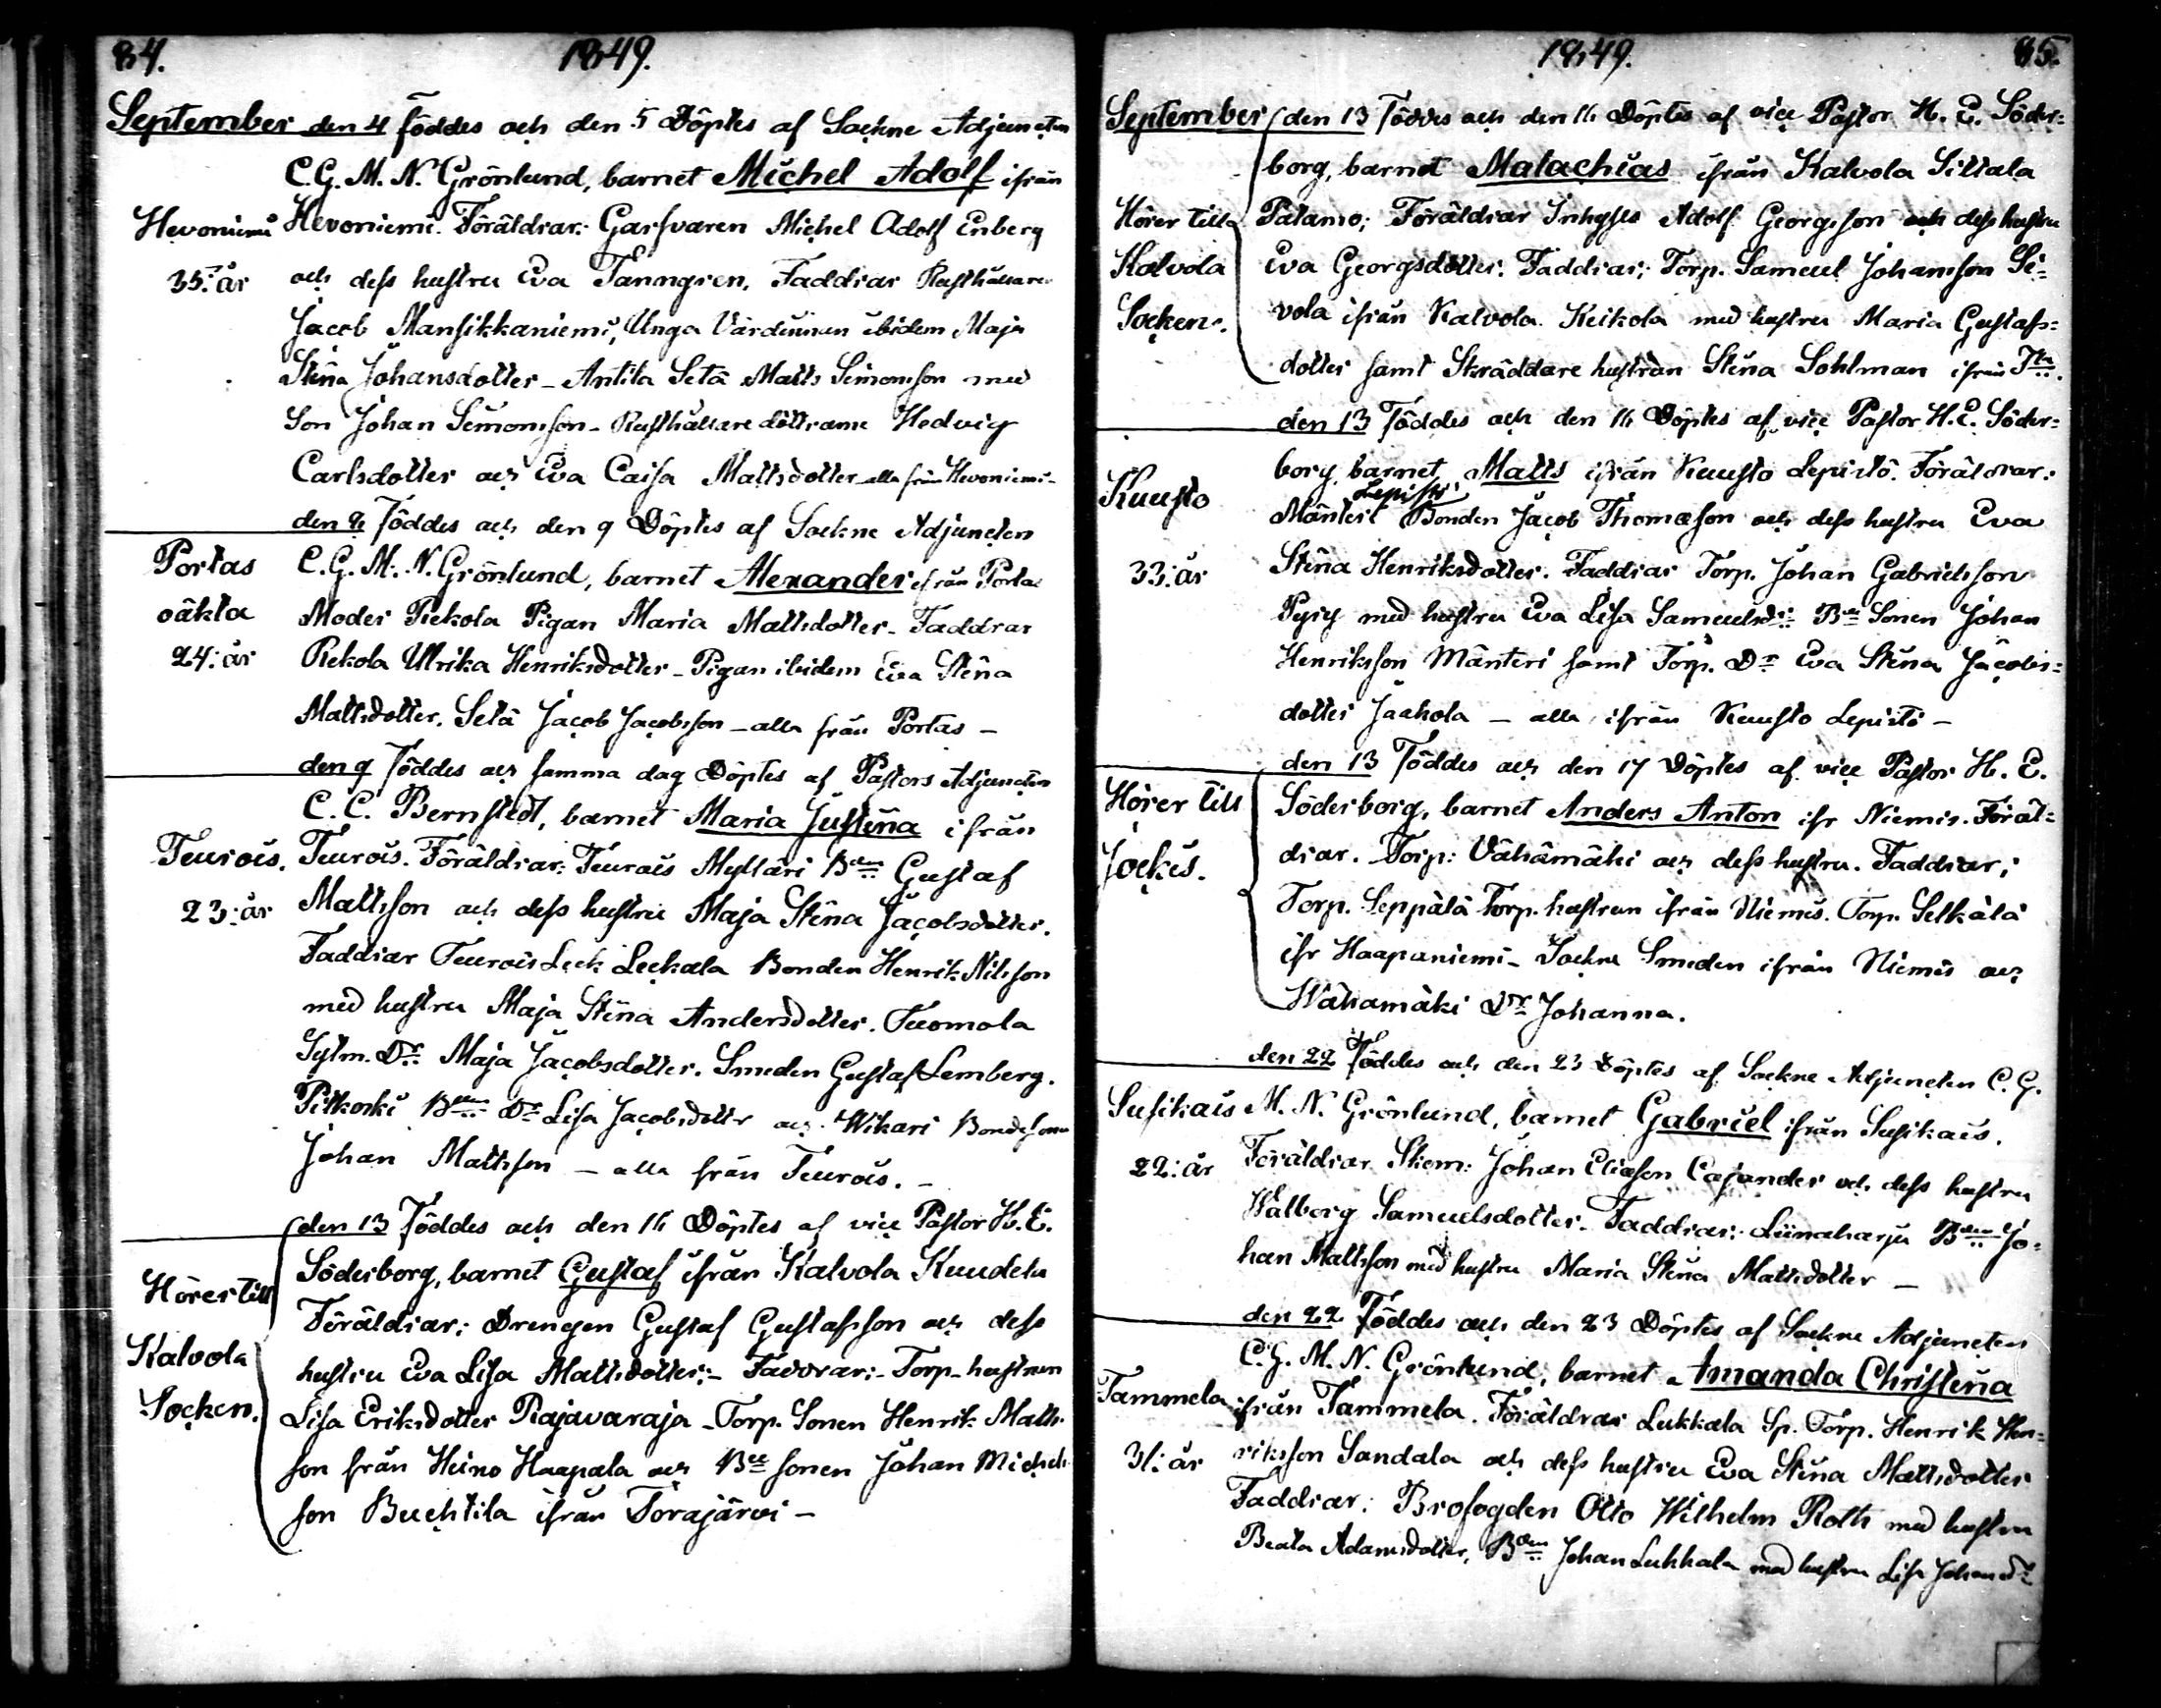 84.
1849.
September den 4 Föddes och den 5 Döptes af Sockne Adjuncten
C. G. M. N. Grönlund, barnet Michel Adolf ifrån
Hevoniemi Hevoniemi. Föräldrar: Garfvaren Michel Adolf Enberg
35: år och dess hustru Eva Tanngren, Faddrar Rusthållare
Jacob Mansikkaniemi, Unga Värdinnan ibidem Maja
Stina Johansdotter - Antila Setä Matts Simonsson med
Son Johan Simonsson - Rusthållare döttrarne Hedvig
Carlsdotter och Eva Caisa Mattsdotter alla från Hevoniemi -
den 8 Föddes och den 9 Döptes af Sockne Adjuncten
Portas C. G. M. N. Grönlund, barnet Alexander ifrån Portas
oäkta Moder Rekola Pigan Maria Mattsdotter - Faddrar
24: år Rekola Ulrika Henriksdotter - Pigan ibidem Eva Stina
Mattsdotter. Setä Jacob Jacobsson - alla från Portas -
den 9 Föddes och samma dag Döptes af Pastors Adjuncten
C. C. Bernstedt, barnet Maria Justina ifrån
Teurois. Teurois. Föräldrar: Teurois Mylläri Bden Gustaf
23: år Mattsson och dess hustru Maja Stina Jacobsdotter.
Faddrar Teurois Leck Leckala Bonden Henrik Nilsson
med hustru Maja Stina Andersdotter. Tuomola
Sytm. Dr Maja Jacobsdotter. Smeden Gustaf Lemberg.
Pitkoski Bden Dr Lisa Jacobsdotter och Wikari Bondesonen
Johan Mattsson - alla från Teurois. -
den 13 Föddes och den 16 Döptes af vice Pastor H. E.
Söderborg, barnet Gustaf ifrån Kalvola Kuudela
Hörer till Föräldrar: Drengen Gustaf Gustafsson och dess
Kalvola hustru Eva Lisa Mattsdotter: - Faddrar: - Torp-hustrun
Socken. Lisa Eriksdotter Rajavaraja - Torp. Sonen Henrik Matts-
son från Heino Haapala och Bde sonen Johan Michels-
son Buchtila ifrån Torajärvi -
1849.
85.
September den 13 Föddes och den 16 Döptes af vice Pastor H. E. Söder-
borg, barnet Malachias ifrån Kalvola Sittala
Hörer till Patamo; Föräldrar Inhyses Adolf Georgsson och dess hustru
Kalvola Eva Georgsdotter. Faddrar; Torp. Samuel Johansson Si-
Socken. vola ifrån Kalvola. Keikola med hustru Maria Gustafs-
dotter samt Skräddare hustrun Stina Sohlman ifrån Tla.
den 13 Föddes och den 16 Döptes af vice Pastor H. E. Söder-
borg, barnet Matts ifrån Kuusto Lepistö. Föräldrar:
Lepistö
Kuusto Mänteri Bonden Jacob Thomasson och dess hustru Eva
33: år Stina Henriksdotter. Faddrar Torp. Johan Gabrielsson
Pyry med hustru Eva Lisa Samuelsdr: Bde Sonen Johan
Henriksson Mänteri samt Torp. Dr Eva Stina Jacobs-
dotter Jaakola - alla ifrån Kuusto Lepistö -
den 13 Föddes och den 17 Döptes af vice Pastor H. E.
Hörer till Söderborg, barnet Anders Anton ifr Niemis. Föräl-
Jockis. drar. Torp: Vähämäki och dess hustru. Faddrar;
Torp. Seppälä Torp. hustrun ifrån Niemis. Torp. Selkälä
ifr Haapaniemi - Sockne Smeden ifrån Niemis och
Wähamäki Dr Johanna.
den 22 Föddes och den 23 Döptes af Sockne Adjuncten C. G.
Susikais M. N. Grönlund, barnet Gabriel ifrån Susikais.
22: år Föräldrar Skom: Johan Eliasson Cajander och dess hustru
Walborg Samuelsdotter. Faddrar: Liinaharju Bden Jo-
han Mattsson med hustru Maria Stina Mattsdotter -
den 22 Föddes och den 23 Döptes af Sockne Adjuncten
C. G. M. N. Grönlund, barnet Amanda Christina
Tammela ifrån Tammela. Föräldrar Lukkala Sp. Torp. Henrik Hen-
31: år riksson Sandala och dess hustru Eva Stina Mattsdotter
Faddrar: Brofogden Otto Wilhelm Roth med hustru
Beata Adamsdotter, Bden Johan Lukkala med hustru Lisa Johansdr